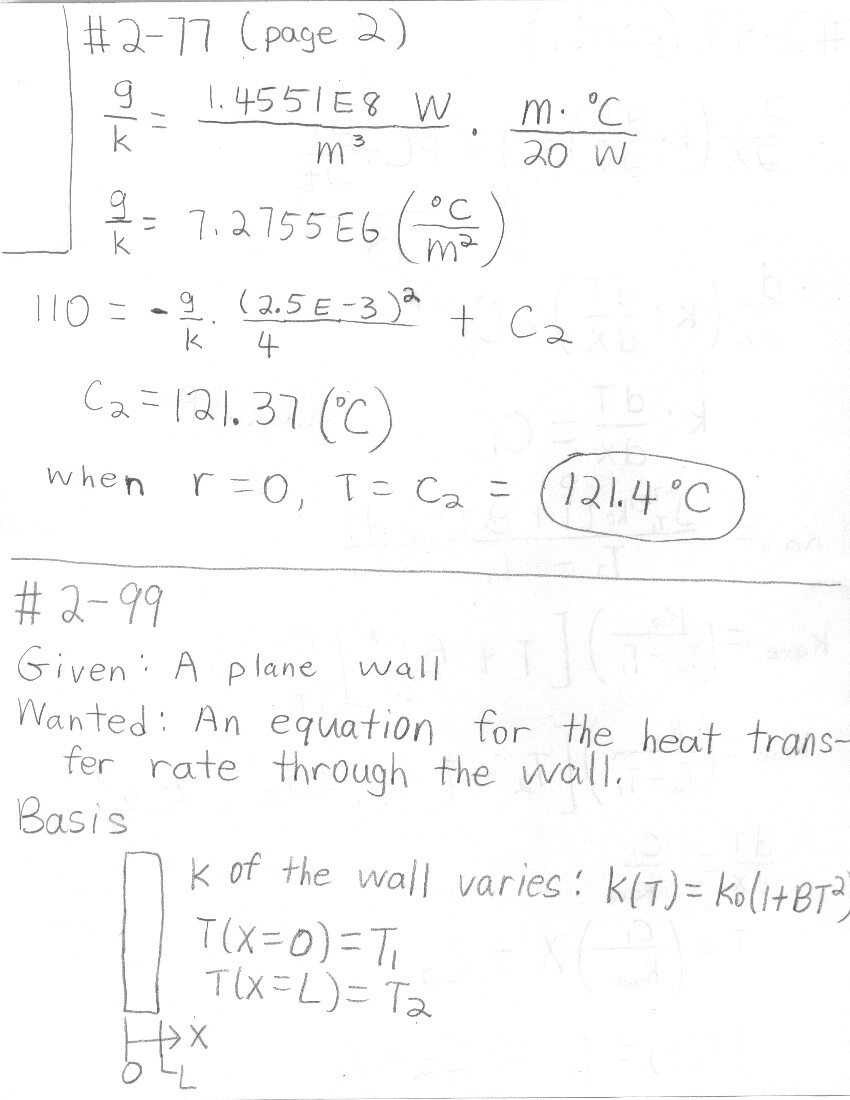 #2-77 (page 2)
g/k = 1.4551E8 W/m³ · m·°C/20 W
g/k = 7.2755E6 (°C/m²)
110 = -g/k · (2.5E-3)²/4 + C₂
C₂ = 121.37 (°C)
when r = 0, T = C₂ = 121.4 °C
#2-99
Given: A plane wall
Wanted: An equation for the heat trans-
fer rate through the wall.
Basis
k of the wall varies: k(T) = k₀(1+BT²)
T(x=0) = T₁
T(x=L) = T₂
x
0 L